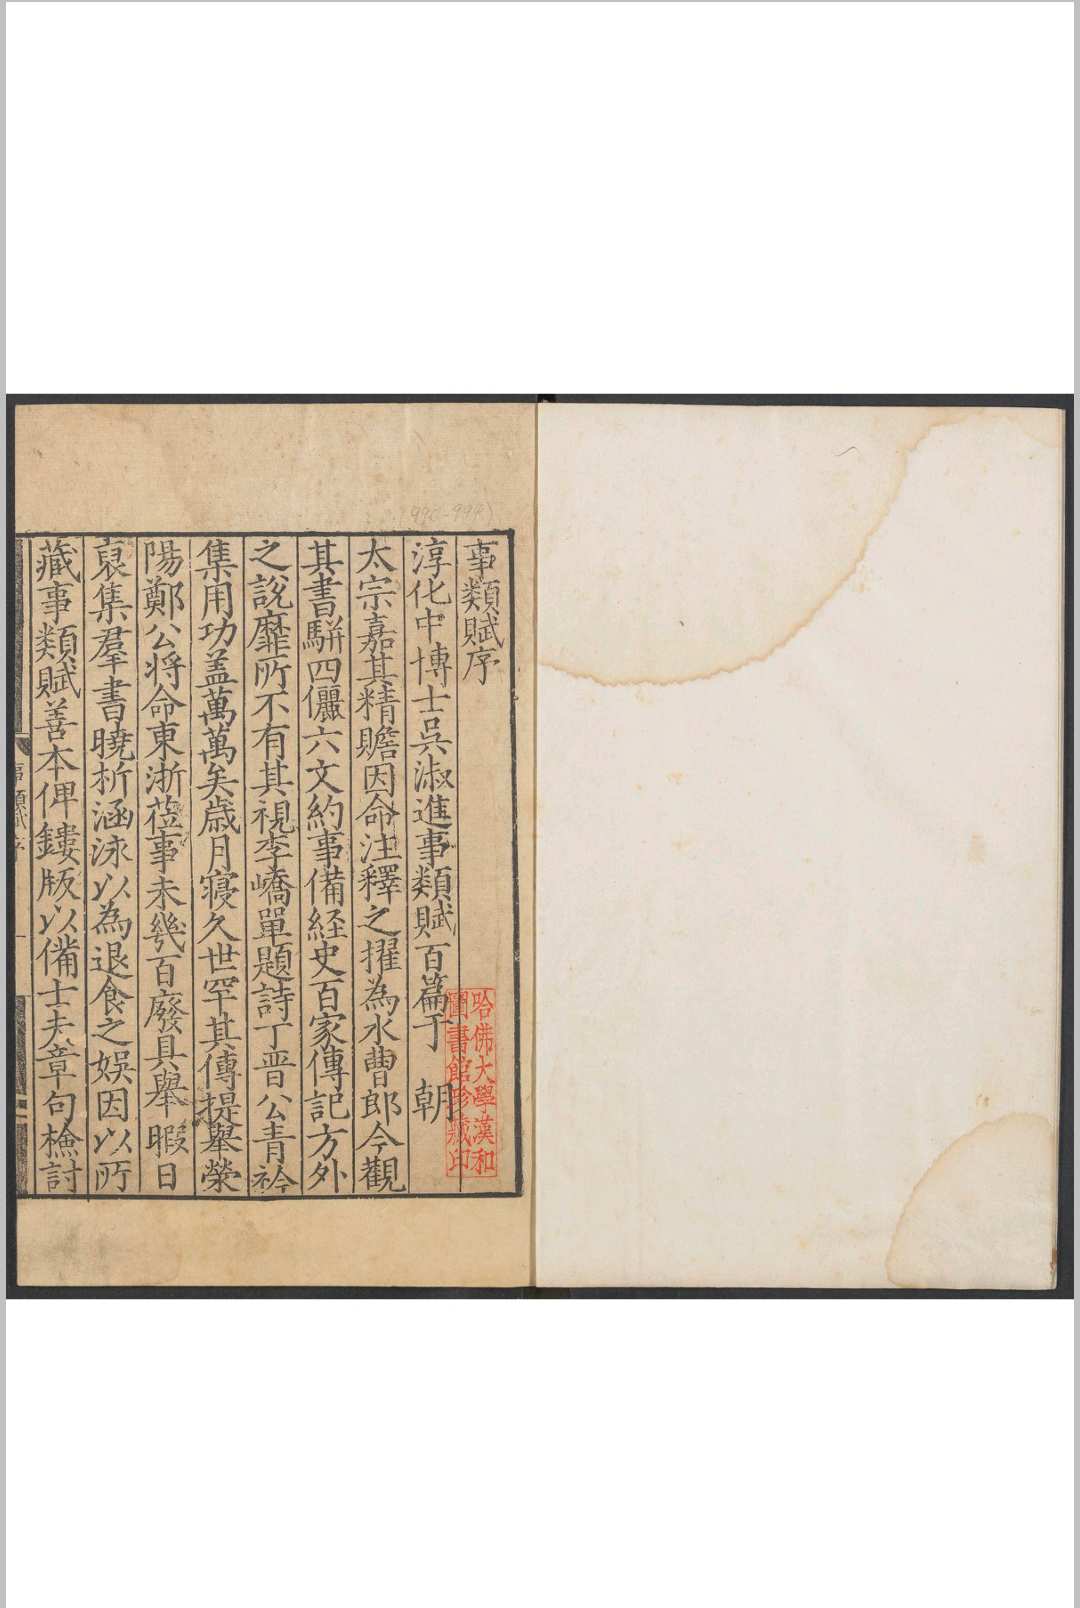 事類賦序
淳化中博士吳淑進事類賦百篇于 朝
太宗嘉其精贍因命注釋之擢為水曹郎今觀
其書駢四儷六文約事備経史百家傳記方外
之說靡所不有其視李嶠單題詩丁晋公青衿
集用功盖萬萬矣歳月寖久世罕其傳提舉榮
陽鄭公将命東浙蒞事未幾百廢具舉暇日
裒集羣書曉析涵泳以為退食之娛因以所
藏事類賦善本俾鏤版以備士夫章句檢討
事類賦序
一
哈佛大學漢和
圖書館珍藏印